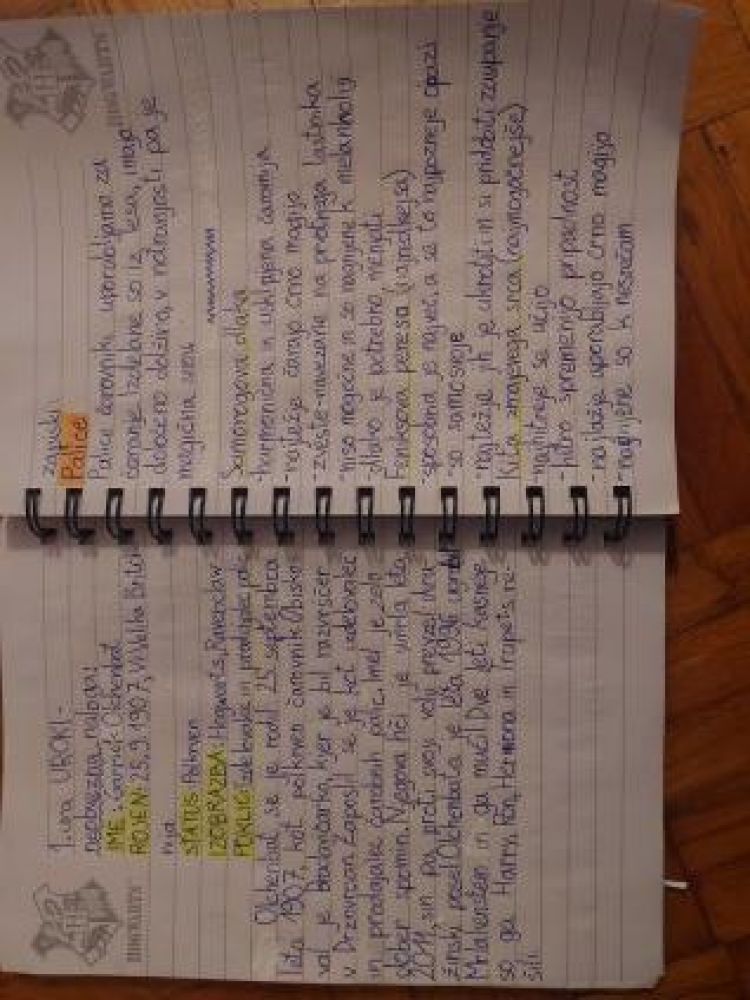 HOGWARTS
1. ura UROKI-
neobvezna naloga!
IME: Garrick Olchenbat
ROJEN: 25.9.1907, V Veliki Brita
niji
STATUS: Polkrven
IZOBRAZBA: Hogwarts, Ravenclaw
POKLIC: izdelovalec in prodajalec palic
Olchenbat se je rodil 25. septembra
leta 1907, kot polkrven čarovnik. Obisko
val je Bradavičarko, kjer je bil razvrščen
v Drznvraan. Zaposlil se je kot izdelovalec
in prodajalec čarobnih palic. Imel je zelo
dober spomin. Njegova hči je umrla leta
2011, sin pa proti svoji volji prevzel dru
žinski posel. Olchenbata je leta 1996 ugrabil
Mrlakenstein in ga mučil. Dve leti kasneje
so ga Harry, Ron, Hermiona in Trapets re-
šili.
HOGWARTS
zapiski
Palice
Palice čarovniki uporabljamo za
čaranje. Izdelane so iz lesa, imajo
določeno dolžino, v notranjosti pa je
magična snov.
Samorogova dlaka
-harmonična in usklajena čarovnija
-najtežje čarajo črno magijo
-zveste-navezane na prvotnega lastnika
-niso mogočne in so nagnjene k melanholiji
-dlako je potrebno menjati
Feniksova peresa
-sposobna je največ, a se to najpozneje opazi
-so samosvoje
-najtežje jih je ukrotiti in si pridobiti zaupanje
Kita zmajevega srca (najmogočnejše)
-najhitreje se učijo
-hitro spremenijo pripadnost
-najlažje uporabljajo črno magijo
-nagnjene so k nesrečam